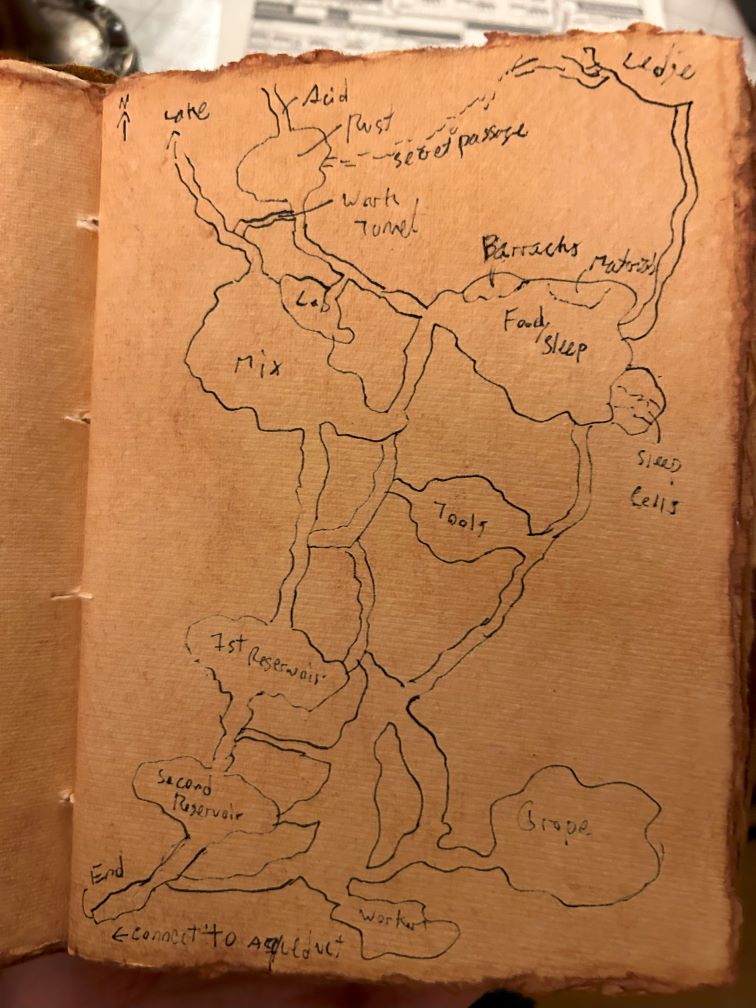 Ledge
Acid
N
Lake
Rust
secret passage
Work
Tunnel
Barracks
Materials
Lab
Food/
Sleep
Mix
Sleep
Cells
Tools
1st Reservoir
Second
Reservoir
Grope
End
Workout
←connect to Aqueduct